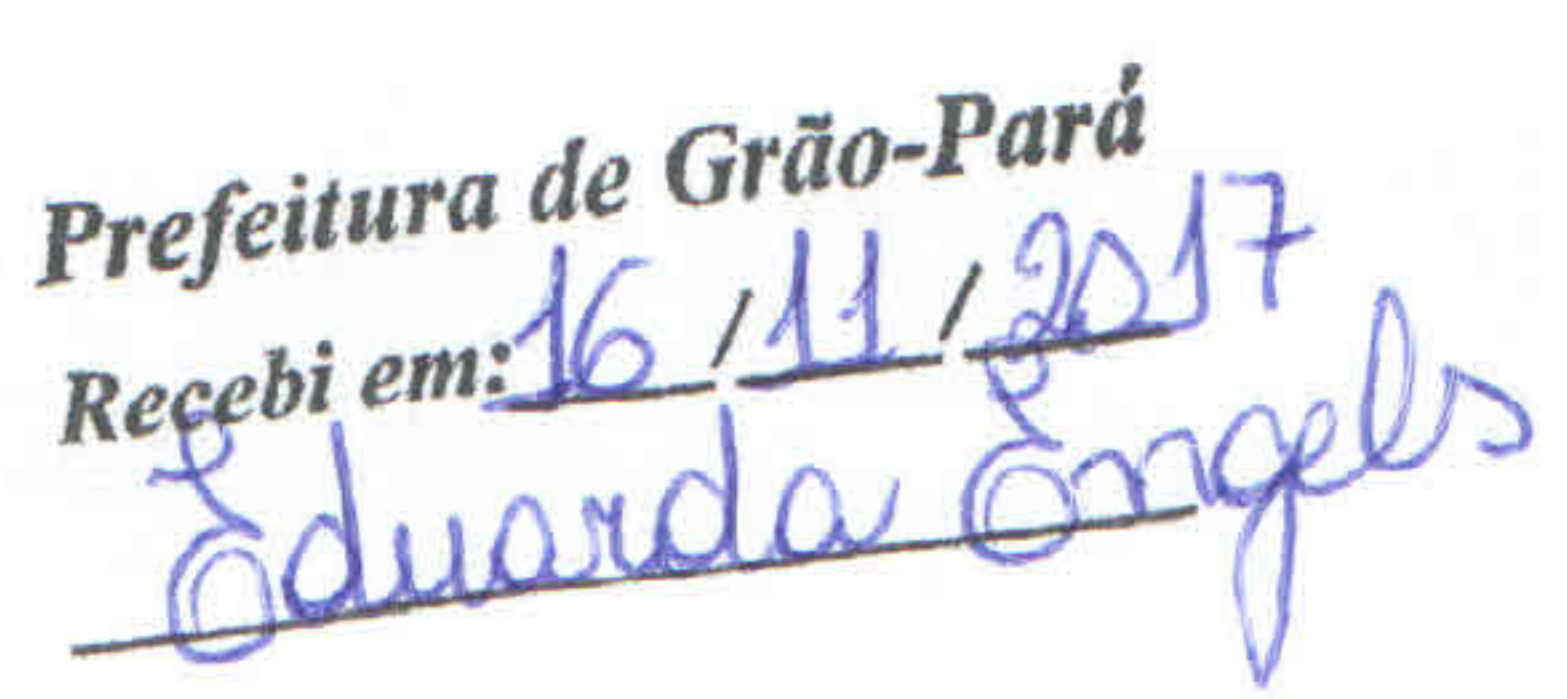 Prefeitura de Grão-Pará
Recebi em: 16 / 11 / 2017
Eduarda Engels